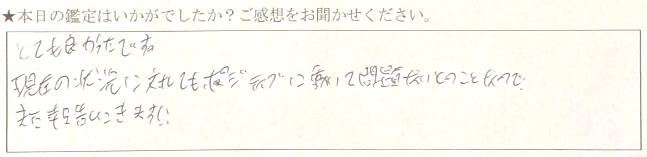 ★本日の鑑定はいかがでしたか？ご感想をお聞かせください。
とても良かったです
現在の状況に対してもポジティブに動いて問題ないとのことなので
また報告にきます!!